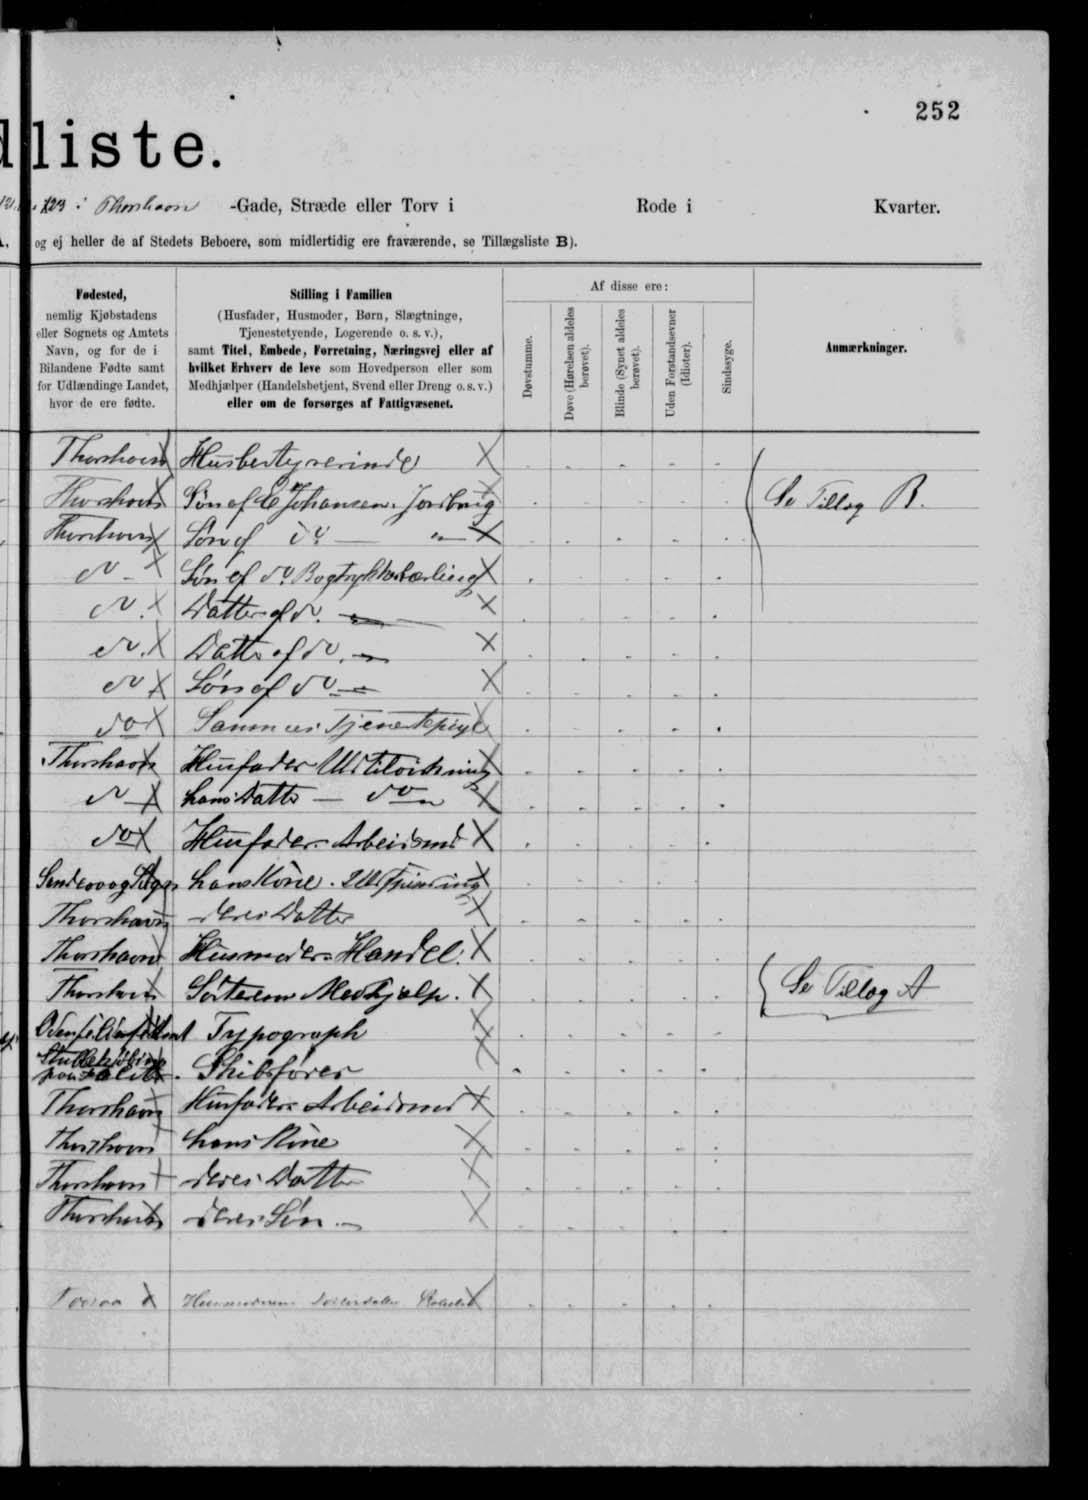 252
dliste.
123 i Thorshavn -Gade, Stræde eller Torv i Rode i Kvarter.
og ej heller de af Stedets Beboere, som midlertidig ere fraværende, se Tillægsliste B).
Fødested,
nemlig Kjøbstadens
eller Sognets og Amtets
Navn, og for de i
Bilandene Fødte samt
for Udlændinge Landet,
hvor de ere fødte.
Stilling i Familien
(Husfader, Husmoder, Børn, Slægtninge,
Tjenestetyende, Logerende o. s. v.),
samt Titel, Embede, Forretning, Næringsvej eller af
hvilket Erhverv de leve som Hovedperson eller som
Medhjælper (Handelsbetjent, Svend eller Dreng o.s.v.)
eller om de forsørges af Fattigvæsenet.
Af disse ere:
Døvstumme.
Døve (Hørelsen aldeles
berøvet).
Blinde (Synet aldeles
berøvet).
Uden Forstandsevner
(Idioter).
Sindssyge.
Anmærkninger.
Thorshavn Husbestyrerinde X
Thorshavn Søn af E Johansen. Jordbrug Se Tillæg B.
Thorshavn Søn af do — " — X
do - X Søn af do. Bogtrykkerlærling X
do. X Datter af do. — X
do. X Datter af do. — X
do X Søn af do — X
do X Sammes Tjenestepige X
Thorshavn Husfader Uldtilvirkning X
do X hans Datter — do X
do X Husfader Arbeidsmd X
Sandevaag Sogn hans Kone. X
Thorshavn deres Datter X
Thorshavn Husmoder Handel. X
Thorshavn Søsteren Medhjælp. X Se Tillæg A
Typograph X
Skibsfører X
Thorshavn Husfader Arbeidsmd X
Thorshavn hans Kone X
Thorshavn deres Datter X
Thorshavn deres Søn — X
X Husmoderens X